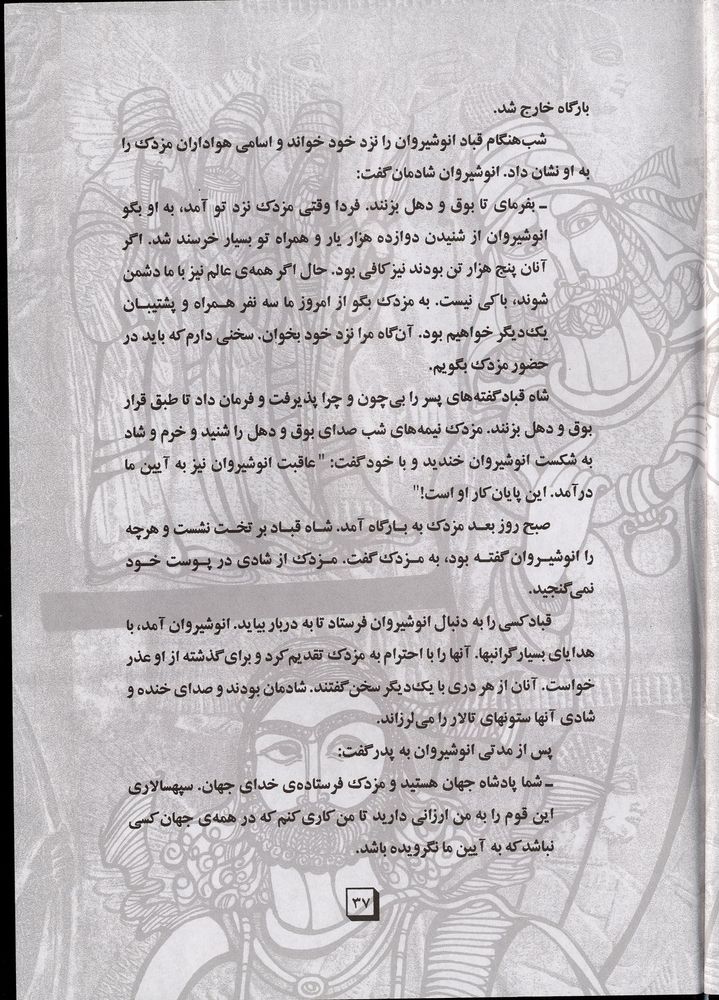 بارگاه خارج شد.
شب‌هنگام قباد انوشیروان را نزد خود خواند و اسامی هواداران مزدک را
به او نشان داد. انوشیروان شادمان گفت:
ـ بفرمای تا بوق و دهل بزنند. فردا وقتی مزدک نزد تو آمد، به او بگو
انوشیروان از شنیدن دوازده هزار یار و همراه تو بسیار خرسند شد. اگر
آنان پنج هزار تن بودند نیز کافی بود. حال اگر همه‌ی عالم نیز با ما دشمن
شوند، باکی نیست. به مزدک بگو از امروز ما سه نفر همراه و پشتیبان
یک‌دیگر خواهیم بود. آن‌گاه مرا نزد خود بخوان. سخنی دارم که باید در
حضور مزدک بگویم.
شاه قباد گفته‌های پسر را بی‌چون و چرا پذیرفت و فرمان داد تا طبق قرار
بوق و دهل بزنند. مزدک نیمه‌های شب صدای بوق و دهل را شنید و خرم و شاد
به شکست انوشیروان خندید و با خود گفت: "عاقبت انوشیروان نیز به آیین ما
درآمد. این پایان کار او است!"
صبح روز بعد مزدک به بارگاه آمد. شاه قباد بر تخت نشست و هرچه
را انوشیروان گفته بود، به مزدک گفت. مزدک از شادی در پوست خود
نمی‌گنجید.
قباد کسی را به دنبال انوشیروان فرستاد تا به دربار بیاید. انوشیروان آمد، با
هدایای بسیار گرانبها. آنها را با احترام به مزدک تقدیم کرد و برای گذشته از او عذر
خواست. آنان از هر دری با یک‌دیگر سخن گفتند. شادمان بودند و صدای خنده و
شادی آنها ستونهای تالار را می‌لرزاند.
پس از مدتی انوشیروان به پدر گفت:
ـ شما پادشاه جهان هستید و مزدک فرستاده‌ی خدای جهان. سپهسالاری
این قوم را به من ارزانی دارید تا من کاری کنم که در همه‌ی جهان کسی
نباشد که به آیین ما نگرویده باشد.
۳۷